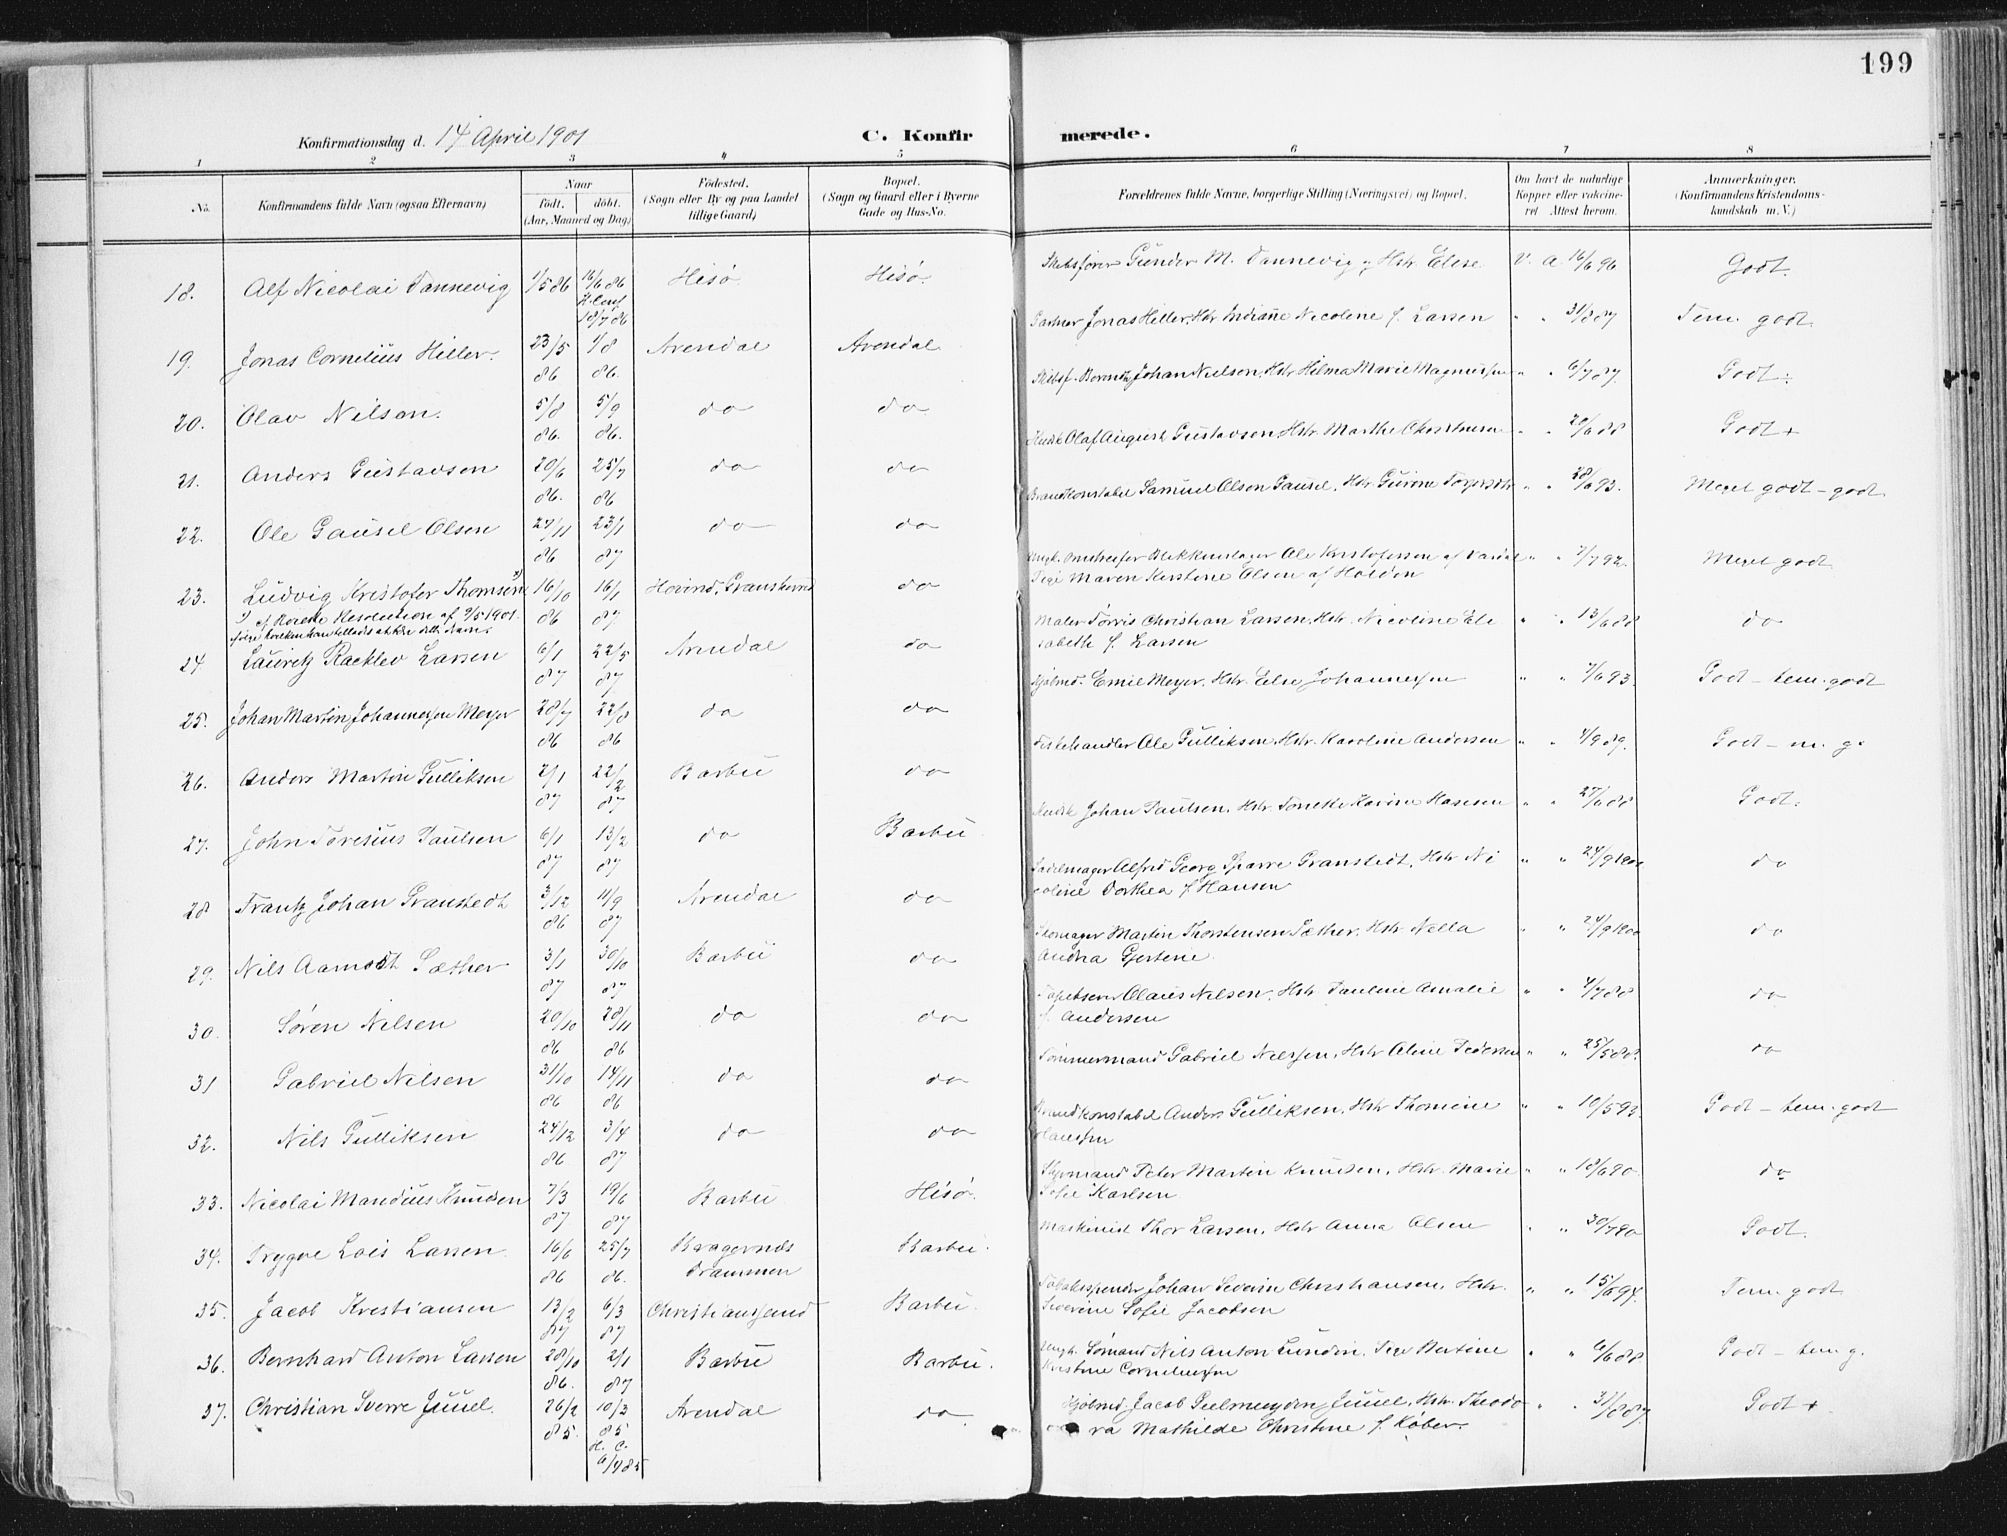 199
Konfirmationsdag d. 14 April 1901
C. Konfir merede.
1 2 3 4 5 6 7 8
No. Konfirmandens fulde Navn (ogsaa Efternavn) Naar født. døbt. (Aar, Maaned og Dag) Fødested. (Sogn eller By og paa Landet tillige Gaard) Bopæl. (Sogn og Gaard eller i Byerne Gade og Hus-No. Forældrenes fulde Navne, borgerlige Stilling (Næringsvei) og Bopæl. Om havt de naturlige Kopper eller vakcineret Attest herom. Anmerkninger. (Konfirmandens Kristendomskundskab m. V.)
18. Alf Nicolai Dannevig 1/5 86 16/6 86 H. Conf. 18/7 86 Hisø Hisø Skibsfører Gunder M. Dannevig, Hstr. Elise V. A. 16/6 96 Godt.
19. Jonas Cornelius Hiller. 23/5 86 1/8 86. Arendal Arendal Jonas Hiller, Hstr Indiane Nicoline f. Larsen " " 31/8 87 Tem. godt.
20. Olav Nilsen. 5/8 86. 5/9 86. do do Johan Nielsen, Hstr Hilma Marie Magnussen " " 6/7 87 Godt ÷
21. Anders Gustavsen 20/6 86. 25/7 86 do do Olaf August Gustavsen Hstr. Marthe Christensen " " 20/6 88 Godt +
22. Ole Gausel Olsen 27/11 86 23/1 87 do do Brandkonstabel Samuel Olsen Gausel, Hstr. Gurine " " 28/6 93. Meget godt – godt
23. Ludvig Kristofer Thomsen x) 16/10 86 16/1 87 Hovind, Granskerud do Ungk. Blikkenslager Ole Kristofersen af Vardal " " 7/7 92. Meget godt
Pige Maren Kirstine Olsen af Holden
24. Lauritz Racklev Larsen 6/1 87 22/5 87 Arendal do Maler Tørris Christian Larsen, Hstr. Nicoline Eli " " 13/6 88 do
sabeth f. Larsen
25. Johan Martin Johannessen Meyer 28/7 86 22/8 86 do do Sjømd. Emil Meyer, Hstr. Else Johannessen " " 7/6 93. Godt – tem. godt
26. Anders Martin Gulliksen 2/1 87 22/2 87 Barbu do Fiskehandler Ole Gulliksen, Hstr. Karoline Andersen " " 4/9 89. Godt – m. g.
27. John Toresius Paulsen 6/1 87 13/2 87 do Barbu Johan Paulsen, Hstr. Tomette Karine Hansen " " 27/6 88 Godt.
28 Frantz Johan Granstedt 3/12 86 11/9 87 Arendal do Sadelmager Alfred Georg Sparre Granstedt, Hstr Ni " " 24/9 1900 do
coline Dorthea f. Hansen
29. Nils Aamodt Sæther 3/1 87 30/10 87 Barbu do Skomager Martin Thorstensen Sæther, Hstr Nella " " 24/9 1900 do
Andrea Gjertine
30. Søren Nilsen 20/10 86 28/11 86 do do Olaus Nilsen, Hstr Pauline Amalie " " 4/7 88 do
f. Andersen
31 Gabriel Nilsen 31/10 86 14/11 86 do do Tømmermand Gabriel Nilsen, Hstr Aline Pedersen " " 25/5 88. do
32. Nils Gulliksen 24/12 86 3/4 87 do do Brandkonstabel Anders Gulliksen, Hstr Thomine " " 10/5 93. Godt – tem. godt
Olaussen
33. Nicolai Mandius Knudsen 7/3 87 19/6 87 Barbu Hisø. Styrmand Peter Martin Knudsen, Hstr. Marie " " 18/6 90. do
Sofie Karlsen
34. Trygve Lois Larsen. 16/6 86 25/7 86. Bragernæs Drammen Barbu. Maskinist Thor Larsen, Hstr Anna Olsen " " 30/7 90 Godt.
35. Jacob Kristiansen 13/2 87 6/3 87 Christianssand Barbu. Johan Severin Christiansen, Hstr. " " 15/6 94. Tem. godt
Severine Sofie Jacobsen
36. Bernhard Anton Larsen 28/10 86. 2/1 87 Barbu Barbu. Ungk. Sømand Nils Anton Lundin, Pige Bertine " " 6/6 88 Godt – tem g.
Kristine Corneliussen
37. Christian Sverre Juuel. 26/2 85. 10/3 85 H. C. 6/4 85 Arendal do Jacob Juuel, Hstr Theodo " " 31/8 87. Godt +
ra Mathilde Christine f. Køber.